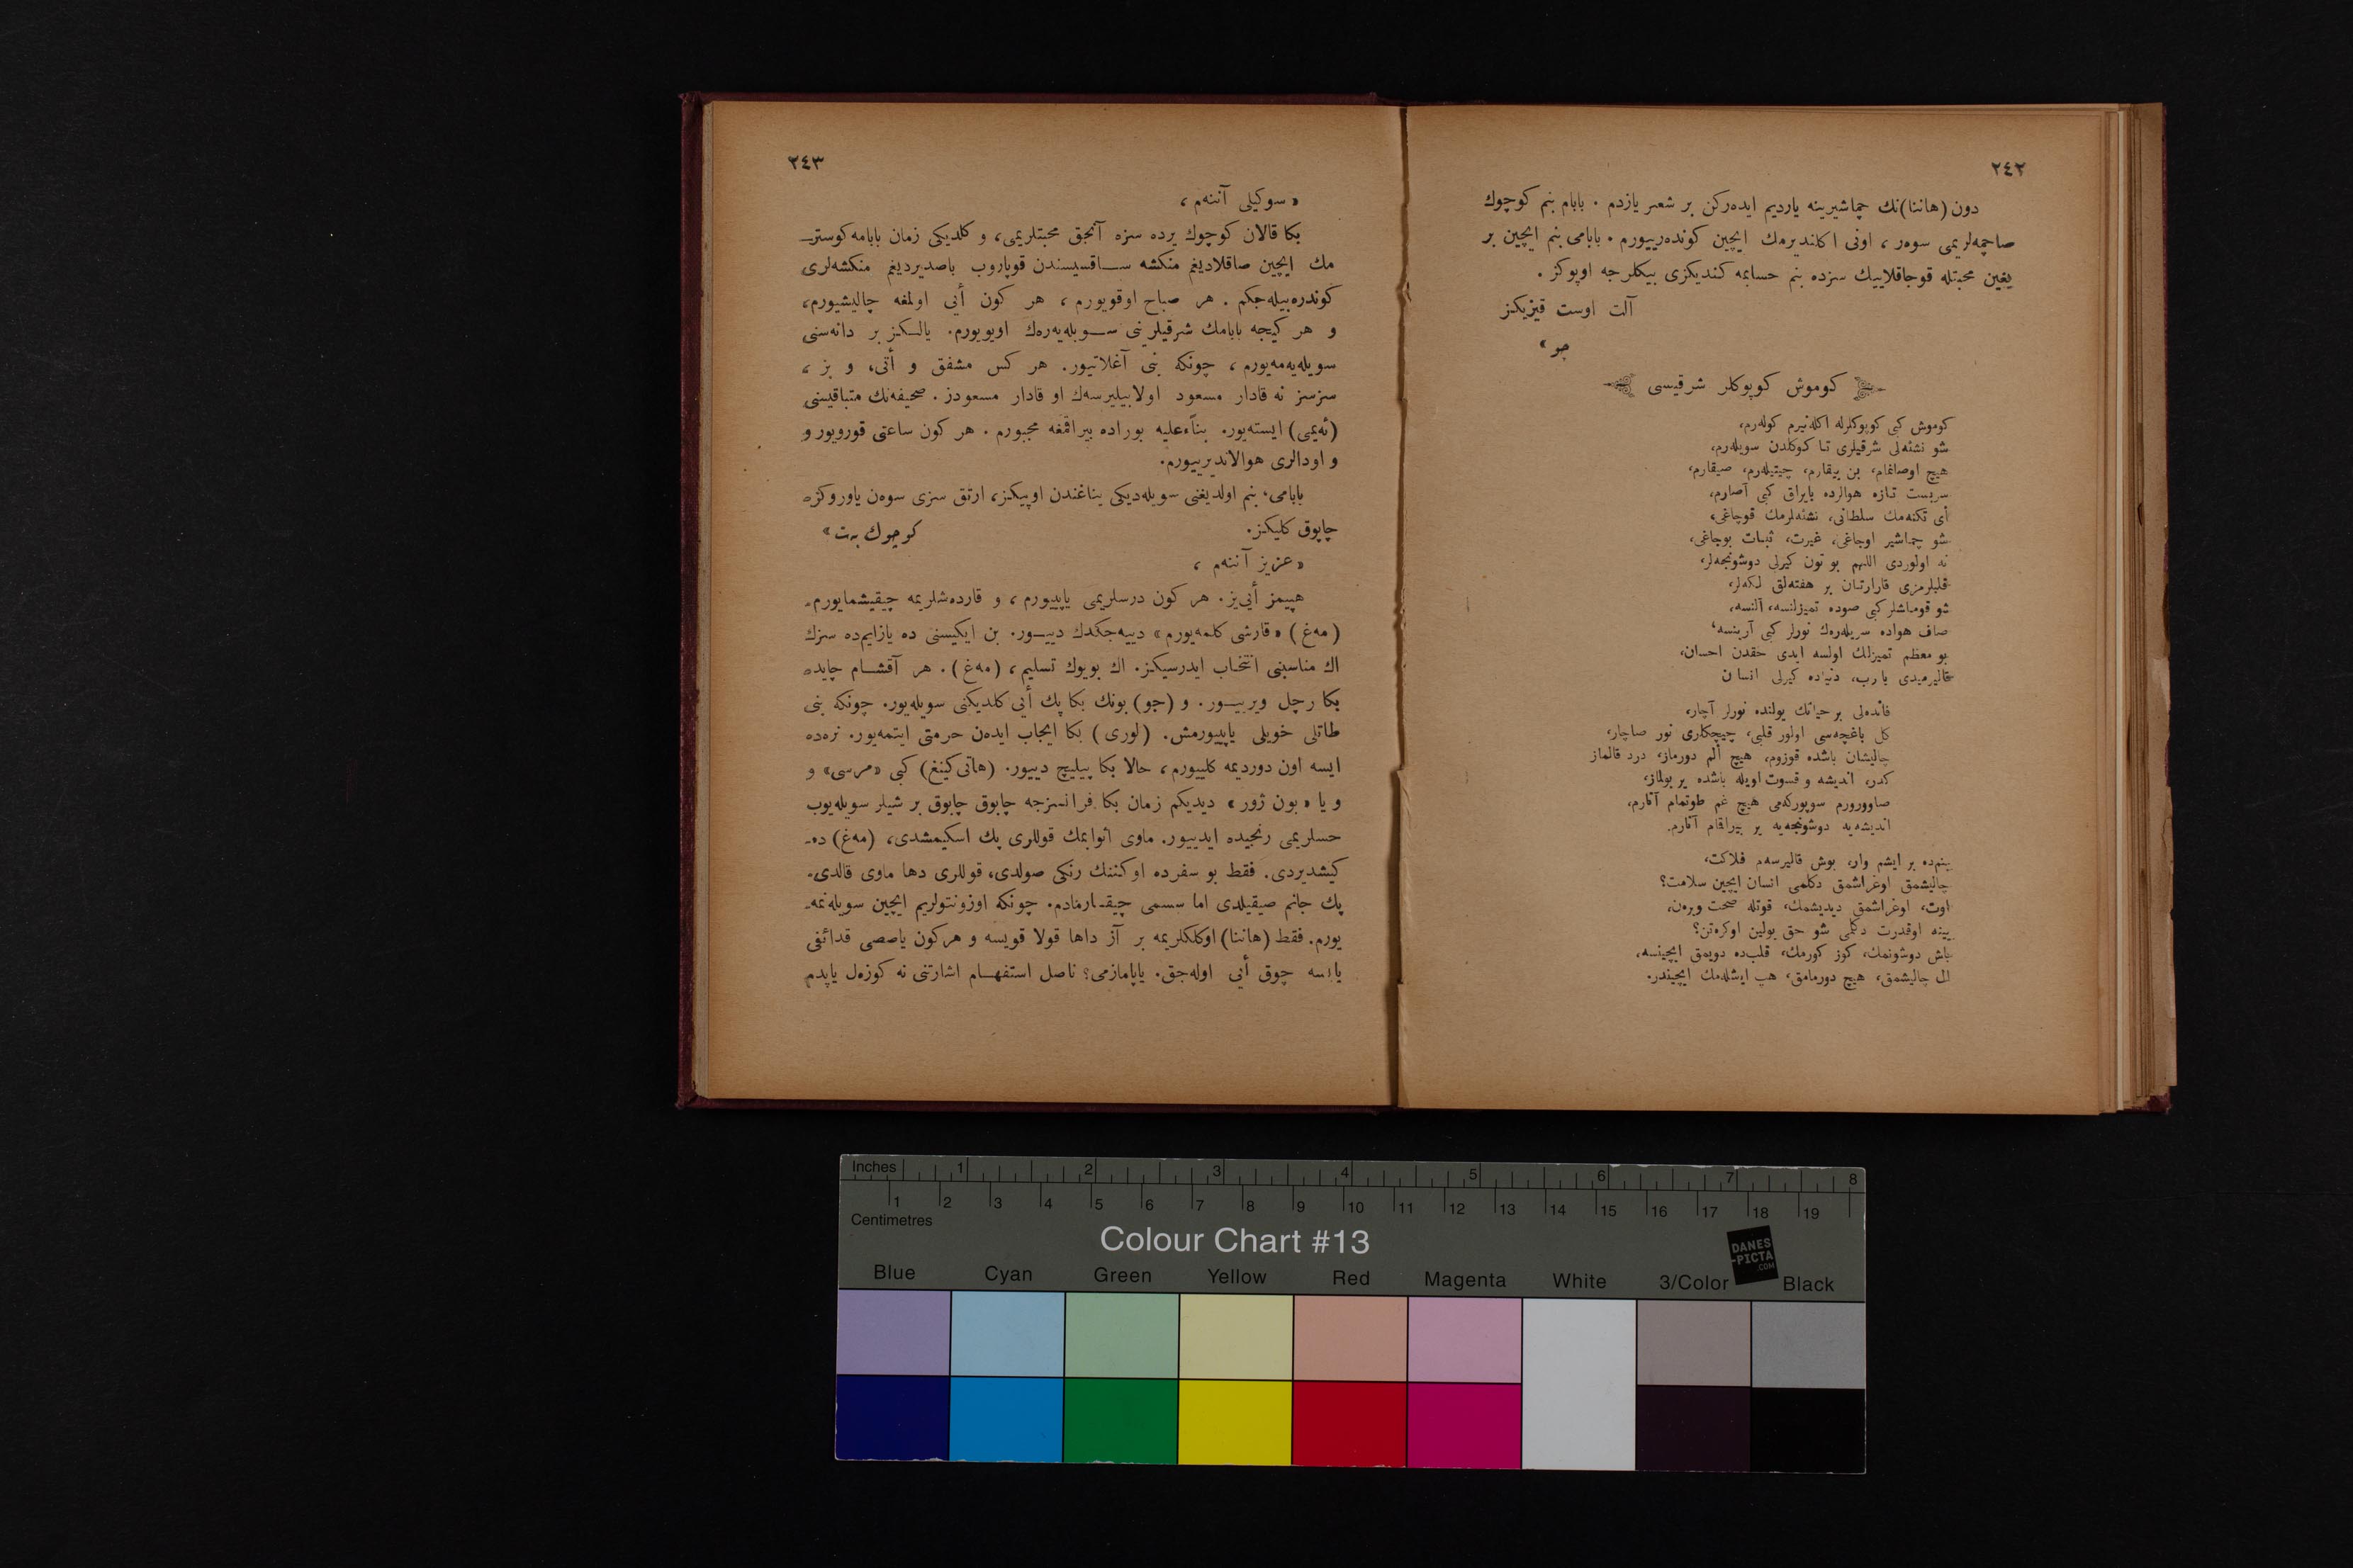 ٢٤٢
دون (هاننا)نك چماشیرینه یاردیم ایده‌ركن بر شعر یازدم . بابام بنم كوچوك
صاچمه‌لریمی سوه‌ر ، اونی اكلندیرمك ایچین كوندەرییورم . بابامی بنم ایچین بر
یغین محبتله قوجاقلاییك سزده بنم حسابمه كندیكزی بیكلرجه اوپوكز .
آلت اوست قیزیكز
جو »
كوموش كوپوكلر شرقیسی
كوموش كبی كوپوكلرله اكله‌نیرم كوله‌رم،
شو نشئه‌لی شرقیلری تا كوكلدن سویله‌رم،
هیچ اوصانمام، بن ییقارم، چیتیله‌رم، صیقارم،
سربست تازه هوالرده بایراق كبی آصارم،
أی تكنه‌مك سلطانی، نشئه‌لرمك قوجاغی،
شو چماشیر اوجاغی، غیرت، ثبات بوجاغی،
نه اولوردی اللهم بو تون كیرلی دوشونجه‌لر،
قلبلرمزی قارارتان بر هفته‌لق لكه‌لر،
شو قوماشلر كبی صوده تمیزلنسه، آلنسه،
صاف هواده سریله‌رك نورلر كبی آرینسه،
بو معظم تمیزلك اولسه ایدی حقدن احسان،
قالیرمیدی یارب، دنیاده كیرلی انسان
فائده‌لی بر حیاتك یولنده نورلر آچار،
كل باغچه‌سی اولور قلبی، چیچكلری نور صاچار،
چالیشان باشده قوزوم، هیچ ألم دورماز، درد قالماز
كدر، اندیشه و قسوت اویله باشده یر بولماز،
صاوورورم سوپوركه‌می هیچ غم طوتمام آتارم،
اندیشه‌یه دوشونجه‌یه یر بیراقمام آتارم.
بنم‌ده بر ایشم وار، بوش قالیرسه‌م فلاكت،
چالیشمق اوغراشمق دكلمی انسان ایچین سلامت؟
اوت، اوغراشمق دیدیشمك، قوتله صحت ویره‌ن،
یینه اوقدرت دكلمی شو حق یولین اوكره‌تن؟
باش دوشونمك، كوز كورمك، قلب‌ده دویمق ایچینسه،
ال چالیشمق، هیچ دورمامق، هپ ایشله‌مك ایچیندر.
٢٤٣
« سوكیلی آننه‌م ،
بكا قالان كوچوك یرده سزه آنجق محبتلریمی، و كلدیكی زمان بابامه كوستر-
مك ایچین صاقلادیغم منكشه ساقسیسندن قوپاروب باصدیردیغم منكشه‌لری
كوندره‌بیله‌جكم . هر صباح اوقویورم ، هر كون أیی اولمغه چالیشیورم،
و هر كیجه بابامك شرقیلرینی سویله‌یه‌رك اویویورم. یالكز بر دانه‌سنی
سویله‌یه‌مه‌یورم ، چونكه بنی آغلاتیور. هر كس مشفق و أیی، و بز ،
سزسز نه قادار مسعود اولابیلیرسه‌ك او قادار مسعودز . صحیفه‌نك متباقیسنی
(ئه‌یمی) ایسته‌یور. بناءعلیه بوراده بیراقمغه مجبورم . هر كون ساعتی قورویور و
و اودالری هوالاندیرییورم.
بابامی، بنم اولدیغنی سویله‌دیكی یناغندن اوپیكز، ارتق سزی سوه‌ن یاوروكزه
چاپوق كلیكز. كوچوك به‌ت »
« عزیز آننه‌م ،
هپیمز أیی‌یز. هر كون درسلریمی یاپییورم ، و قارده‌شلریمه چیقیشمایورم.
(مه‌غ) « قارشی كلمه‌یورم » دییه‌جكدك دییور. بن ایكیسنی ده یازایم‌ده سزك
اك مناسبنی انتخاب ایدرسیكز. اك بویوك تسلیم ، (مه‌غ) . هر آقشام چایده
بكا رچل ویرییور. و (جو) بونك بكا پك أیی كلدیكنی سویله‌یور. چونكه بنی
طاتلی خویلی یاپییورمش. (لوری) بكا ایجاب ایده‌ن حرمتی ایتمه‌یور. نره‌ده
ایسه اون دوردیمه كلییورم، حالا بكا پیلیچ دییور. (هاتی‌كینغ) كبی «مرسی» و
و یا « بون ژور » دیدیكم زمان بكا فرانسزجه چابوق چابوق بر شیلر سویله‌یوب
حسلریمی رنجیده ایدییور. ماوی اثوابمك قوللری پك اسكیمشدی، (مه‌غ) ده-
كیشدیردی. فقط بو سفرده اوكننك رنكی صولدی، قوللری دها ماوی قالدی.
پك جانم صیقیلدی اما سسمی چیقارمادم. چونكه اوزونتولریم ایچین سویله‌نمه-
یورم. فقط (هاننا) اوكلكلریمه بر آز داها قولا قویسه و هركون یاصصی قدائفی
یاپسه چوق أیی اوله‌جق. یاپامازمی؟ ناصل استفهام اشارتنی نه كوزه‌ل یاپدم
Inches 1 2 3 4 5 6 7 8
1 2 3 4 5 6 7 8 9 10 11 12 13 14 15 16 17 18 19
Centimetres
Colour Chart #13
DANES
-PICTA
.COM
Blue Cyan Green Yellow Red Magenta White 3/Color Black